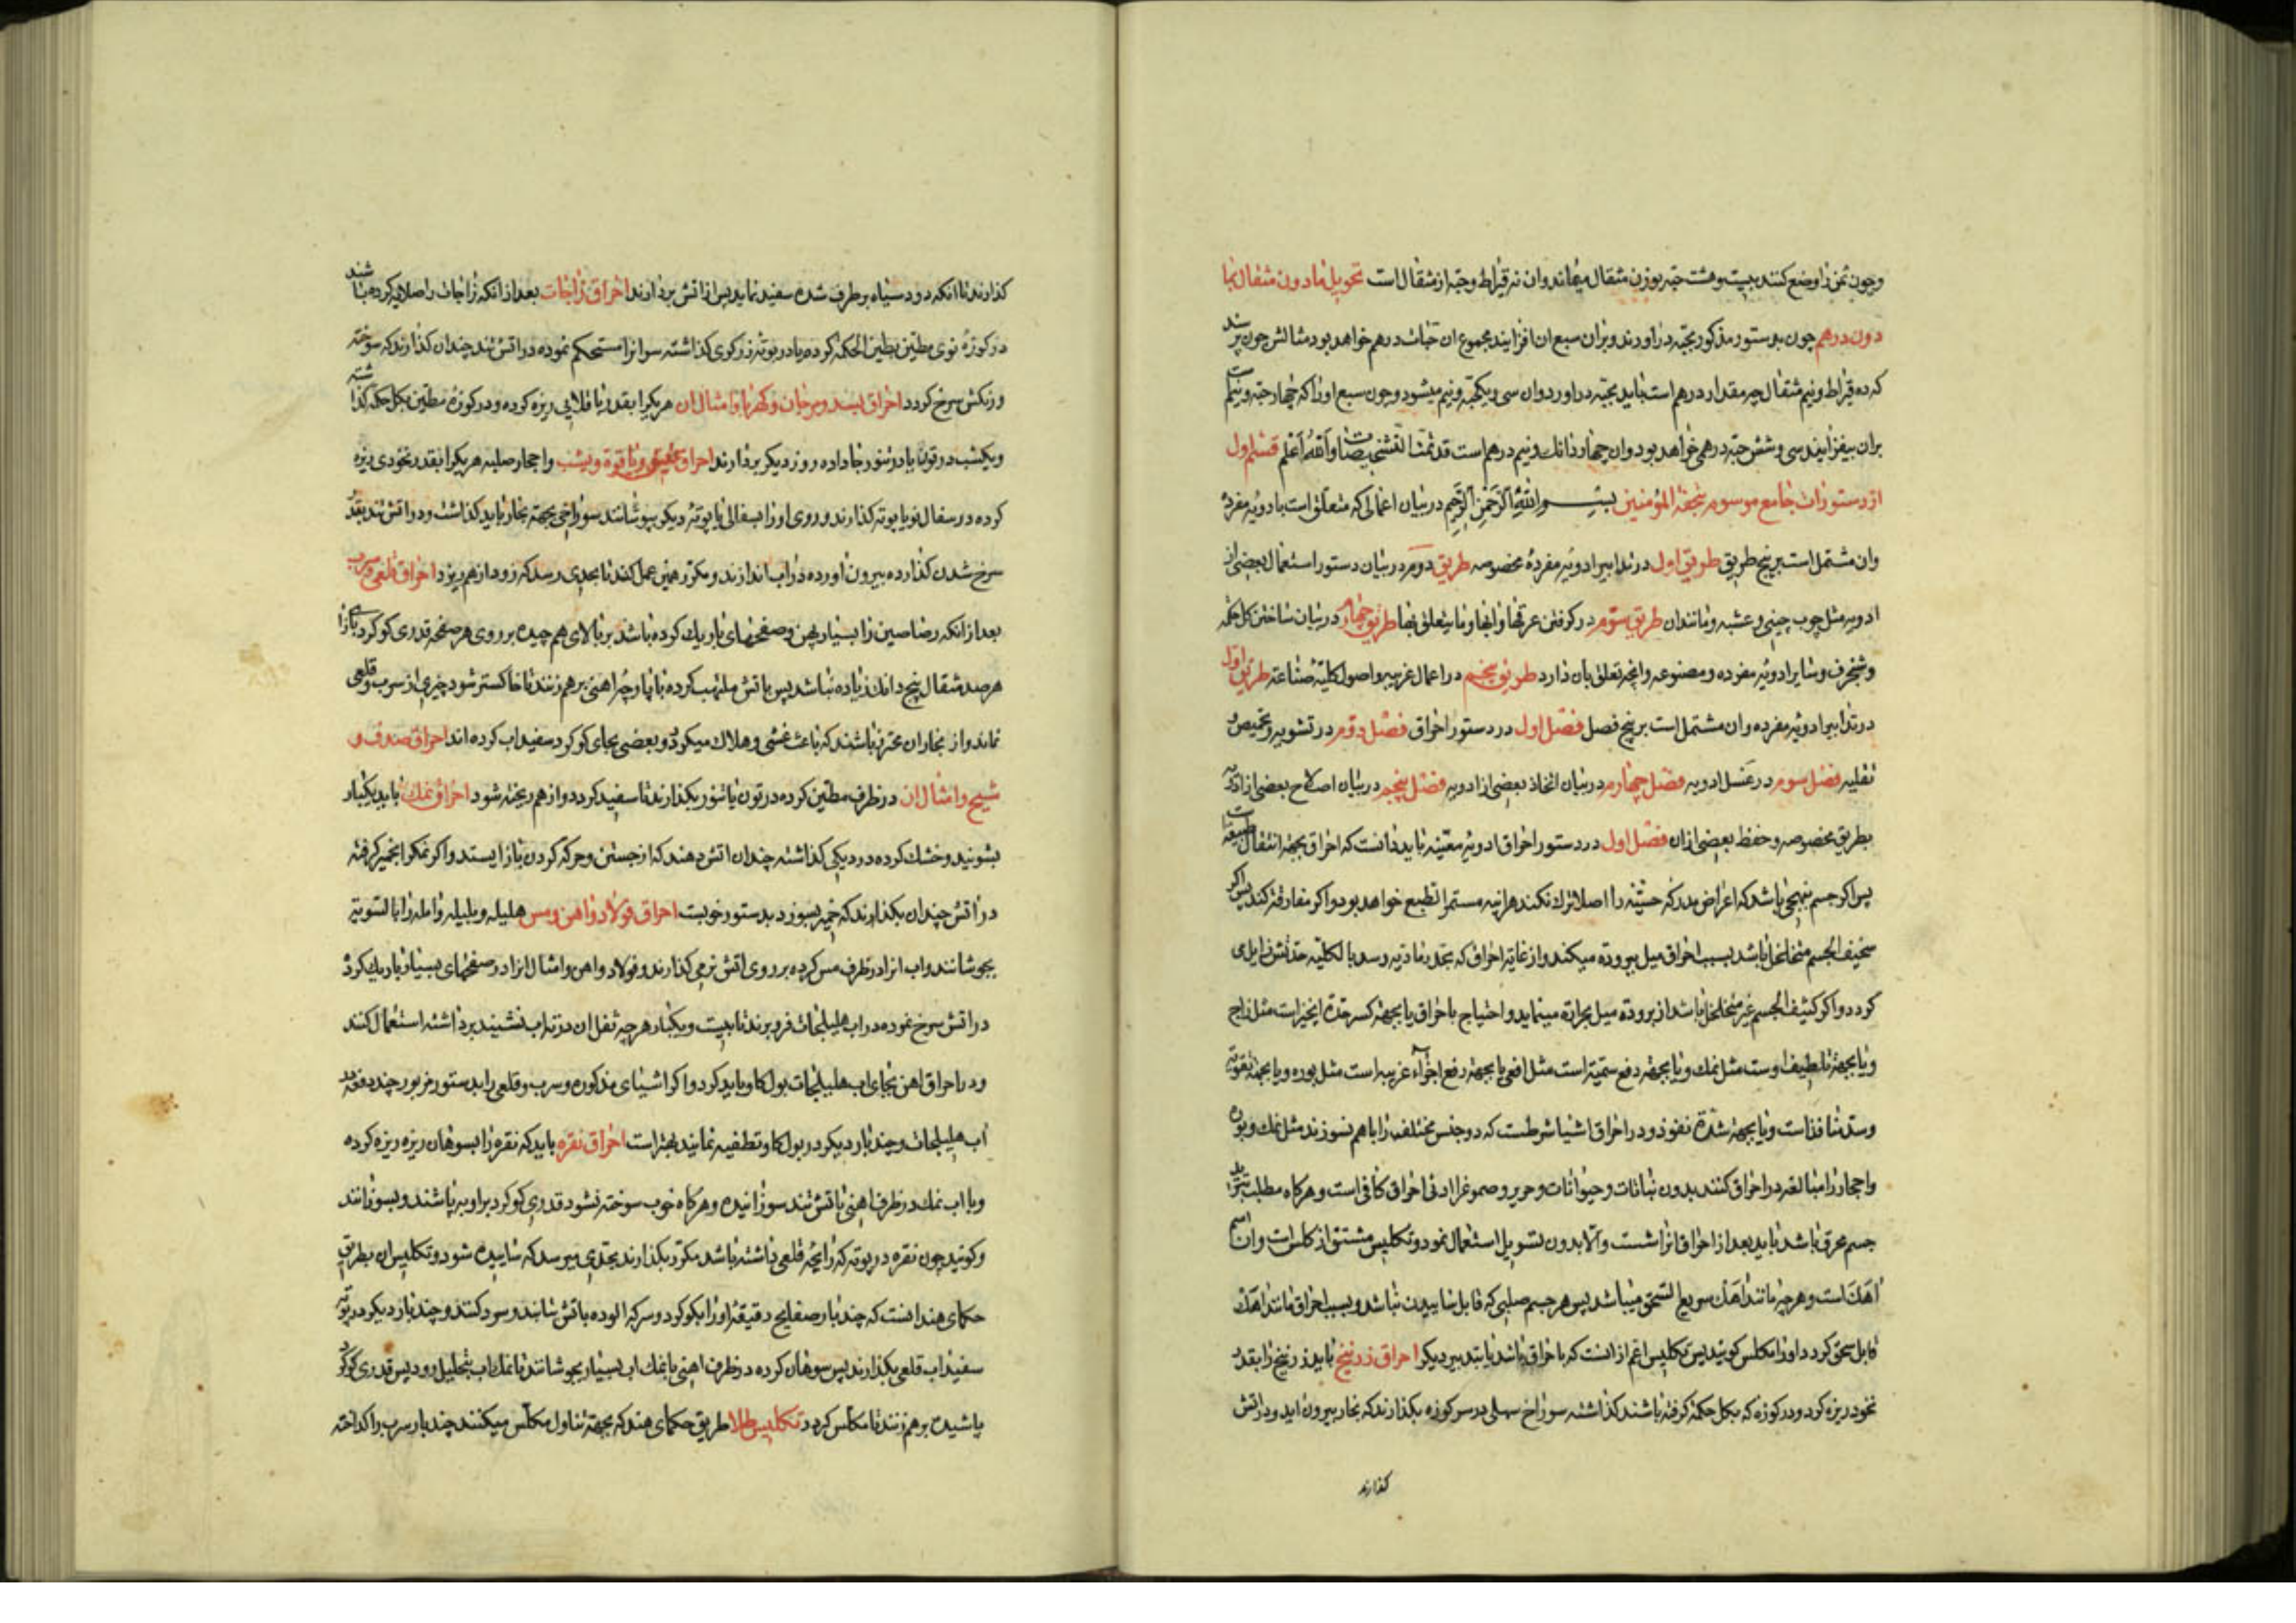 وچون ثمن را وضع کنند بیست وهشت حبه بوزن مثقال میماند وان نه قیراط وحبه از مثقال است تحویل مادون مثقال بما
دون درهم چون بدستور مذکور بحبه دراورند وبران سبع ان افزایند مجموع ان حبات درهم خواهد بود مثالش چون پرسند
که ده قیراط ونیم مثقال چه مقدار درهم است باید بحبه دراورد وان سی ویکحبه ونیم میشود وچون سبع اورا که چهار حبه ونیم است
بران بیفزایند سی وشش حبه درهمی خواهد بود وان چهار دانک ونیم درهم است قد تمت التشخیصات والله اعلم قسم اول
از دستورات جامع موسوم بتحفة المؤمنین بسم الله الرحمن الرحیم در بیان اعمالی که متعلق است بادویه مفرده
وان مشتمل است بر پنج طریق طریق اول در تدابیر ادویه مفرده مخصوصه طریق دوم در بیان دستور استعمال بعضی از
ادویه مثل چوب چینی وعشبه ومانند ان طریق سوم در کرفتن عرقها وابها وما یتعلق بها طریق چهارم در بیان ساختن کل حکمه
وشنجرف وسایر ادویه مفرده ومصنوعه وانچه تعلق بان دارد طریق پنجم در اعمال غریبه واصول کلیه صناعته طریق اول
در تدابیر ادویه مفرده وان مشتمل است بر پنج فصل فصل اول در دستور احراق فصل دوم در تشویه وتحمیص و
تقلیه فصل سوم در غسل ادویه فصل چهارم در بیان اتخاذ بعضی از ادویه فصل پنجم در بیان اصلاح بعضی از ادویه
بطریق مخصوصه وحفظ بعضی ازان فصل اول در دستور احراق ادویه معینه باید دانست که احراق بجهة انتقال طبیعت است
پس اکر جسم بنهجی باشد که اعراض مدرکه حسیه را اصلا ترک نکند هراینه مستمر الطبع خواهد بود واکر مفارقة کند پس اکر
سخیف الجسم متخلخل باشد بسبب احراق میل ببرودة میکند واز غایة احراق که بحد رمادیه رسد بالکلیه حدتش زایل می
کردد واکر کثیف الجسم غیر متخلخل باشد از برودة میل بحرارة مینماید واحتیاج باحراق یا بجهة کسر حدة انچیز است مثل زاج
ویا بجهة تلطیف اوست مثل نمک ویا بجهة دفع سمیة است مثل افعی یا بجهة دفع اجزاء غریبه است مثل بوره ویا بجهة تقویه
وسد منافذ است ویا بجهة شدة نفوذ ودر احراق اشیا شرطست که دو جنس مختلف را باهم نسوزند مثل نمک وبوره
واحجار را مبالغه در احراق کنند بدون نباتات وحیوانات وحریر وصموغ را ادنی احراق کافی است وهرکاه مطلب تبرید
جسم محرق باشد باید بعد از احراق انرا شست والا بدون تسویل استعمال نمود وتکلیس مشتق از کلس است وان اسم
اهک است وهرچه مانند اهک سریع السحق میباشد پس هر جسم صلبی که قابل ساییدن نباشد وبسبب احراق مانند اهک
قابل سحق کردد اورا مکلس کویند پس تکلیس اعم از انست که باحراق باشد یا بتدبیر دیکر احراق زرنیخ باید زرنیخ را بقدر
نخود ریزه کرد ودر کوزه که بکل حکمة کرفته باشند کذاشته سوراخ سهلی در سر کوزه بکذارند که بخار بیرون اید ودر اتش
کذارند
کذارند تا انکه دود سیاه برطرف شده سفید نماید پس از اتش بردارند احراق زاجات بعد از انکه زاجات را صلایه کرده باشند
در کوزه نوی مطین بطین الحکمه کرده یا در بوته زرکری کذاشته سر انرا مستحکم نموده در اتش تند چندان کذارند که سوخته
ورنکش سرخ کردد احراق بسد ومرجان وکهربا وامثال ان هریکرا بقدر باقلایی ریزه کرده ودر کوزه مطین بکل حکمه کذاشته
ویکشب در تون یا در تنور جا داده روز دیکر بردارند احراق عقیق ویاقوة ویشب واحجار صلبه هریکرا بقدر نخودی ریزه
کرده در سفال نو یا بوته کذارند وروی اورا بسفالی یا بوته دیکر بپوشانند سوراخی بجهة بخار باید کذاشت ودر اتش تند بقدر
سرخ شدن کذارده بیرون اورده در اب اندازند ومکرر همین عمل کنند تا بحدی رسد که زود از هم ریزد احراق قلعی وسرب
بعد از انکه رصاصین را بسیار پهن وصفحهای باریک کرده باشد بر بالای هم چیده بر روی هر صفحه قدری کوکرد بازای
هر صد مثقال پنج دانک زیاده نباشد پس باتش ملتهب کرده با پارچه اهنی برهم زنند تا خاکستر شود وچیزی از سرب وقلعی
نماند واز بخار ان محترز باشند که باعث غشی وهلاک میکردد وبعضی بجای کوکرد سفیداب کرده اند احراق صدف و
شیح وامثال ان در ظرف مطین کرده در تون یا تنور بکذارند تا سفید کردد واز هم ریخته شود احراق نمک باید یکبار
بشویند وخشک کرده در دیکی کذاشته چندان اتش دهند که از جستن وحرکة کردن باز ایستد واکر نمکرا بخمیر کرفته
در اتش چندان بکذارند که خمیر بسوزد بدستور خوبست احراق فولاد واهن ومس هلیله وبلیله وامله را بالسویه
بجوشانند واب انرا در ظرف مس کرده بر روی اتش نرمی کذارند وفولاد واهن وامثال انرا در صفحهای بسیار باریک کرده
در اتش سرخ نموده در اب هلیلجات فرو برند تا بیست ویکبار هرچه ثفل ان در ته اب نشیند برداشته استعمال کنند
ودر احراق اهن بجای اب هلیلجات بول کاو باید کرد واکر اشیای مذکوره وسرب وقلعی را بدستور مزبور چند دفعه در
اب هلیلجات وچند بار دیکر در بول کاو تطفیه نمایند بهتر است احراق نقره باید که نقره را بسوهان ریزه ریزه کرده
وبا اب نمک در ظرف اهنی باتش تند سوزانیده وهرکاه خوب سوخته نشود قدری کوکرد براو بپاشند وبسوزانند
وکویند چون نقره در بوته که رایحه قلعی داشته باشد مکرر بکذارند بحدی میرسد که ساییده شود وتکلیس ان بطریق
حکمای هند انست که چند بار صفایح دقیقه اورا بکوکرد وسرکه الوده باتش تابند وسرد کنند وچند بار دیکر در بوته
سفیداب قلعی بکذارند پس سوهان کرده در ظرف اهنی با نمک اب بسیار بجوشانند تا نمک اب بتحلیل رود پس قدری کوکرد
پاشیده برهم زنند تا مکلس کردد تکلیس طلا طریق حکمای هند که بجهة تناول مکلس میکنند چند بار سرب را کداخته